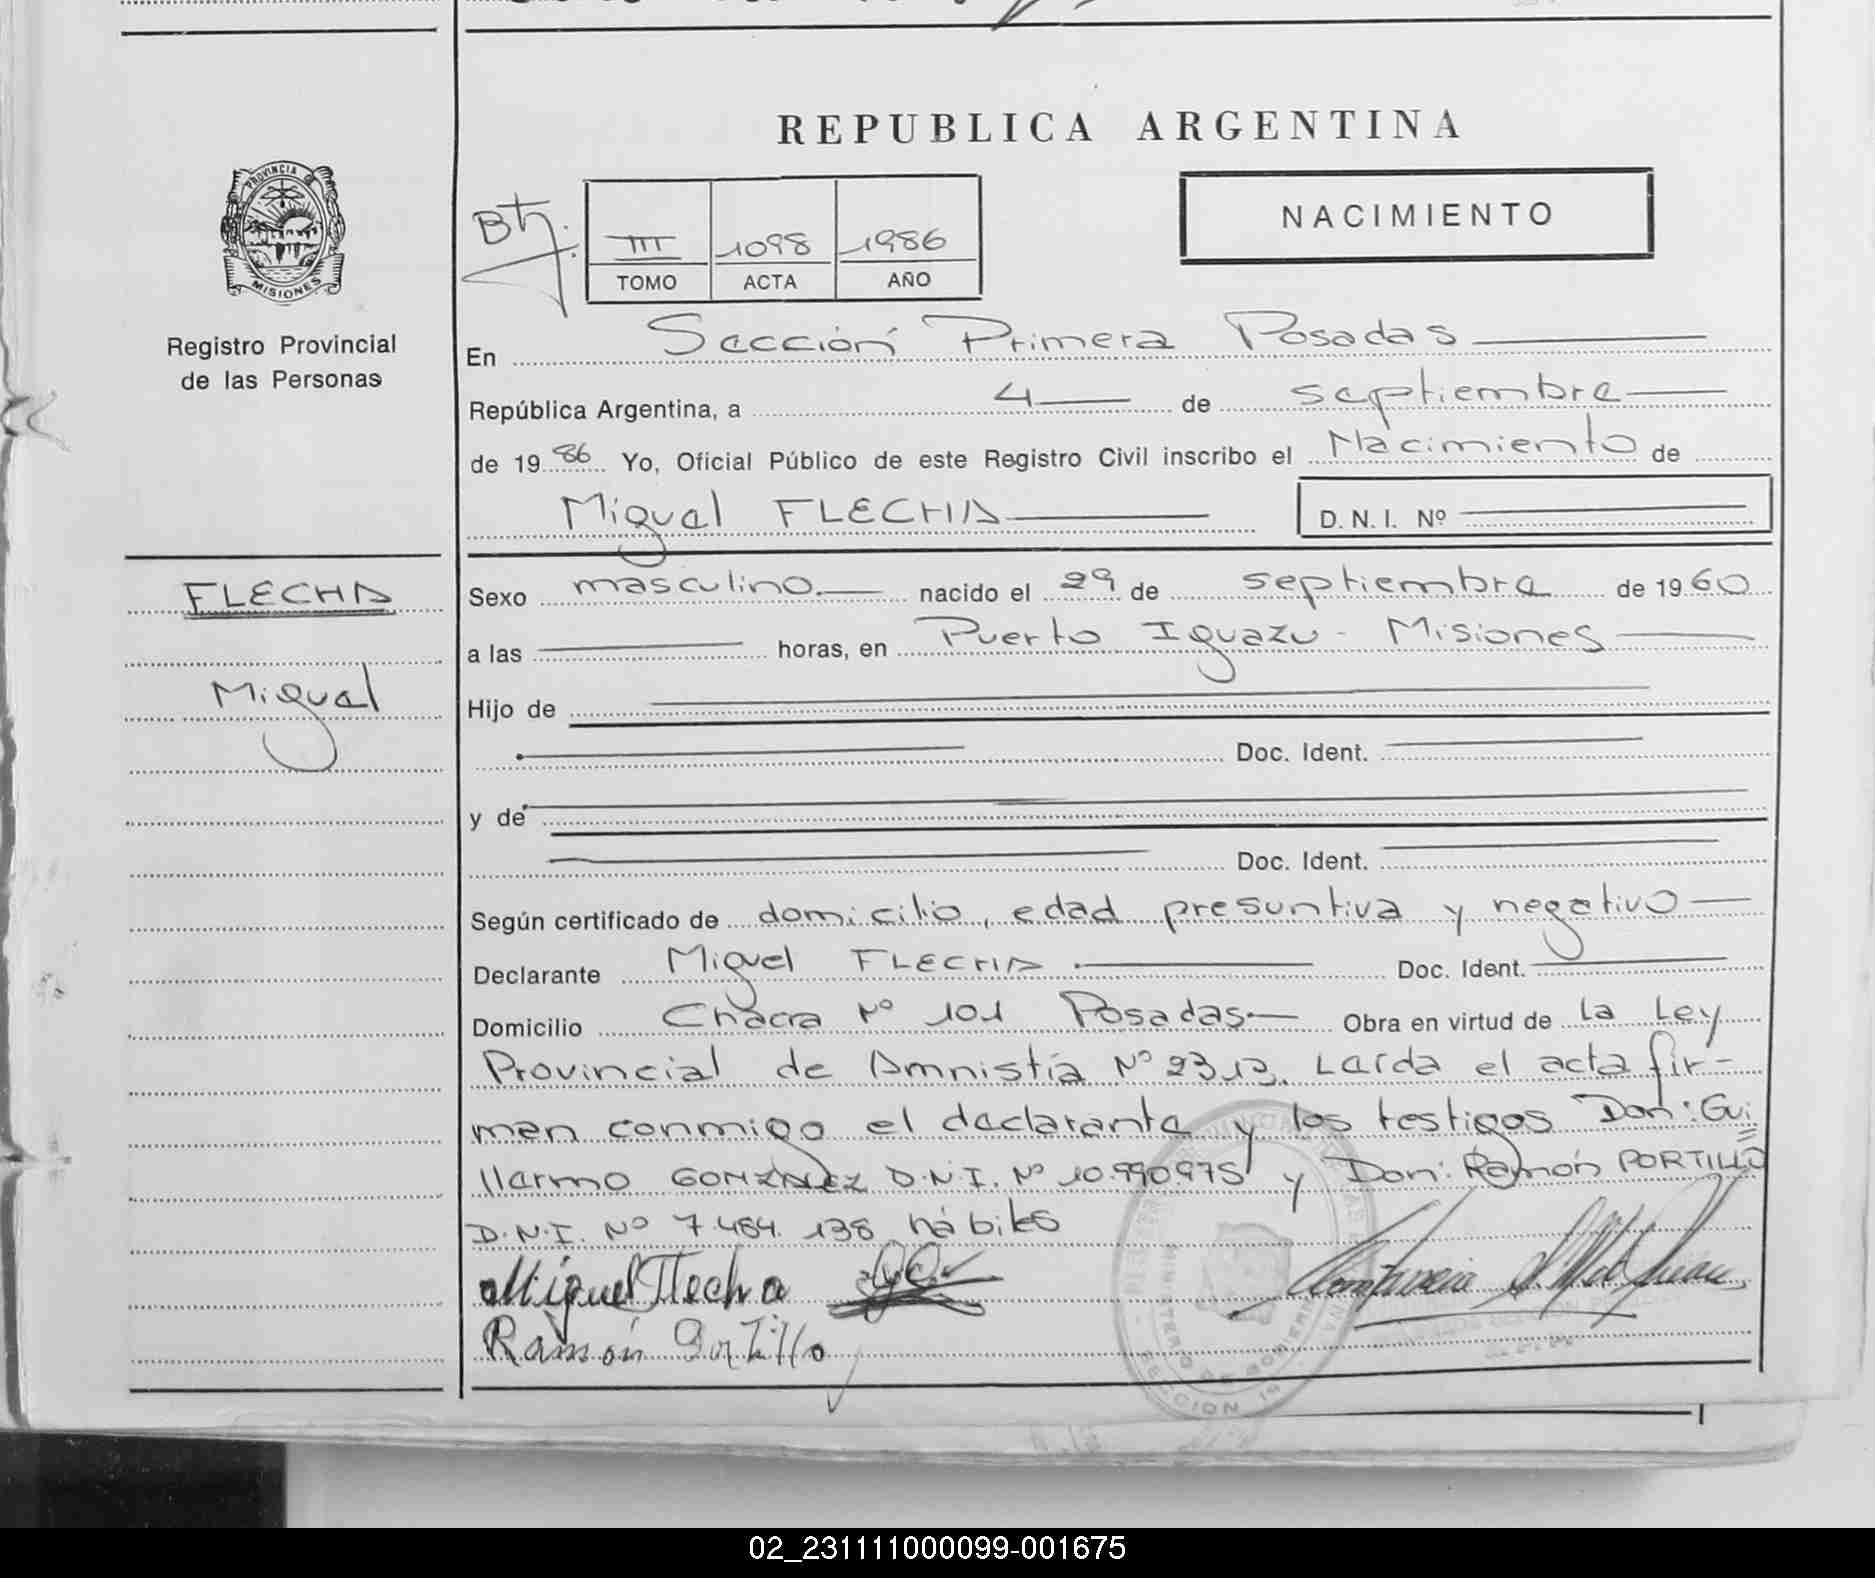 REPUBLICA ARGENTINA
PROVINCIA DE
MISIONES
Registro Provincial
de las Personas
III 1098 1986
TOMO ACTA AÑO
NACIMIENTO
En Sección Primera Posadas
República Argentina, a 4 de septiembre
de 1986 Yo, Oficial Público de este Registro Civil inscribo el Nacimiento de
Miguel FLECHA D. N. I. Nº
FLECHA
Miguel
Sexo masculino nacido el 29 de septiembre de 1960
a las horas, en Puerto Iguazu - Misiones
Hijo de
Doc. Ident.
y de
Doc. Ident.
Según certificado de domicilio, edad presuntiva y negativo
Declarante Miguel FLECHA Doc. Ident.
Domicilio Chacra Nº 101 Posadas Obra en virtud de La Ley
Provincial de Amnistía Nº 2313. Leída el acta fir=
man conmigo el declarante y los testigos Don: Gui
llermo GONZALEZ D.N.I. Nº 10.990975 y Don: Ramón PORTILLO
D.N.I. Nº 7.484.138 hábiles
Miguel Flecha
Ramón Portillo
02_231111000099-001675